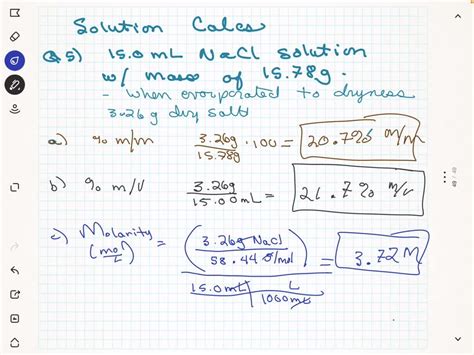 Solution Calcs
Q5) 15.0 mL NaCl solution
w/ mass of 15.78g.
- when evaporated to dryness
3.26g dry salt
a) % m/m 3.26g / 15.78g · 100 = 20.7% m/m
b) % m/v 3.26g / 15.00mL = 21.7% m/v
c) Molarity (mol/L) = (3.26g NaCl / 58.44 g/mol) / 15.0mL | L / 1000mL = 3.72 M